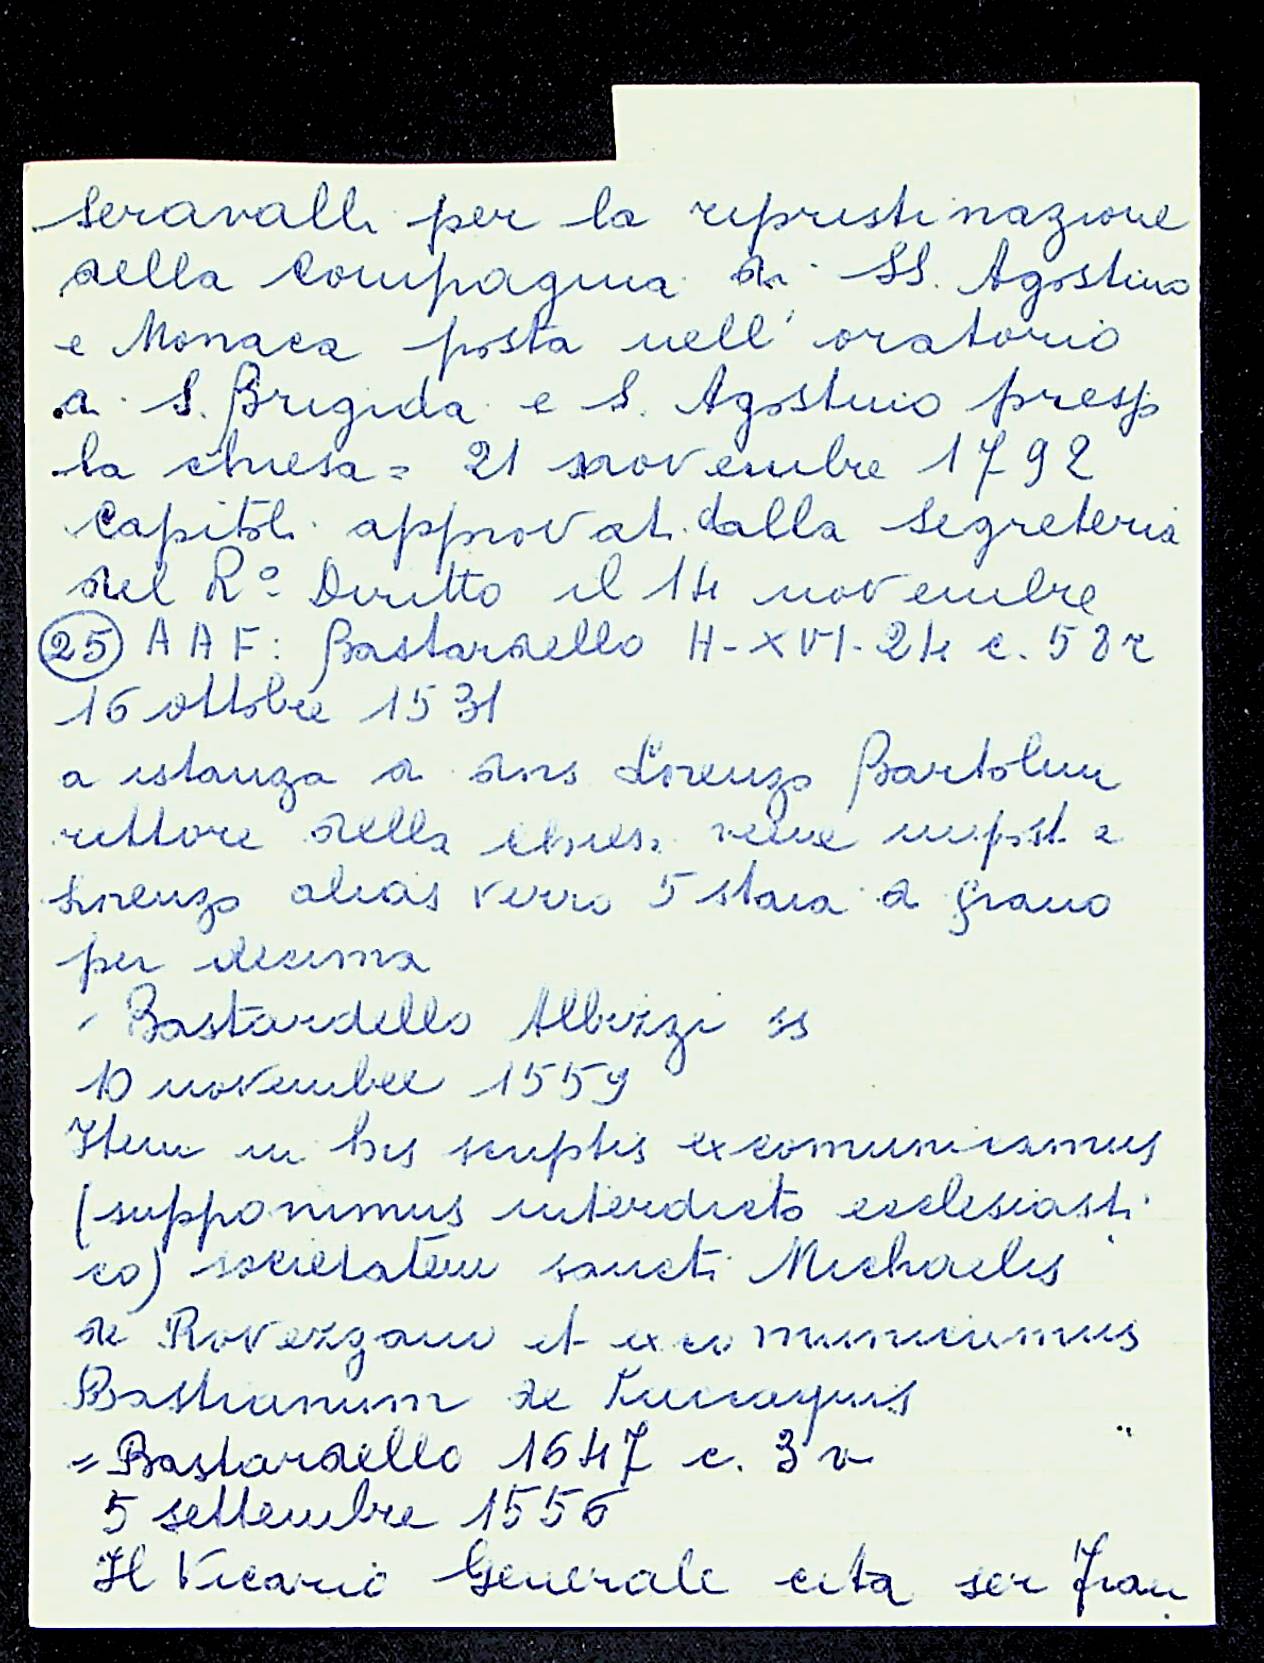 Seravalli per la ripristinazione
della Compagnia di SS. Agostino
e Monaca posta nell' oratorio
di S. Brigida e S. Agostino presso
la chiesa = 21 novembre 1792
Capitoli approvati dalla Segreteria
del R.º Diritto il 14 novembre
(25) AAF: Bastardello H-XVI-24 c. 58r
16 ottobre 1531
a istanza di dns Lorenzo Bartolini
rettore della chiesa viene imposto a
Lorenzo alias Verro 5 staia di grano
per decima
- Bastardello Albizzi ss
10 novembre 1559
Item in his scriptis excomunicamus
(supponimus interdicto ecclesiasti
co) societatem sancti Michaelis
de Rovezzano et excomunicamus
Bastianum de
= Bastardello 1647 c. 3v
5 settembre 1556
Il Vicario Generale cita ser Fran